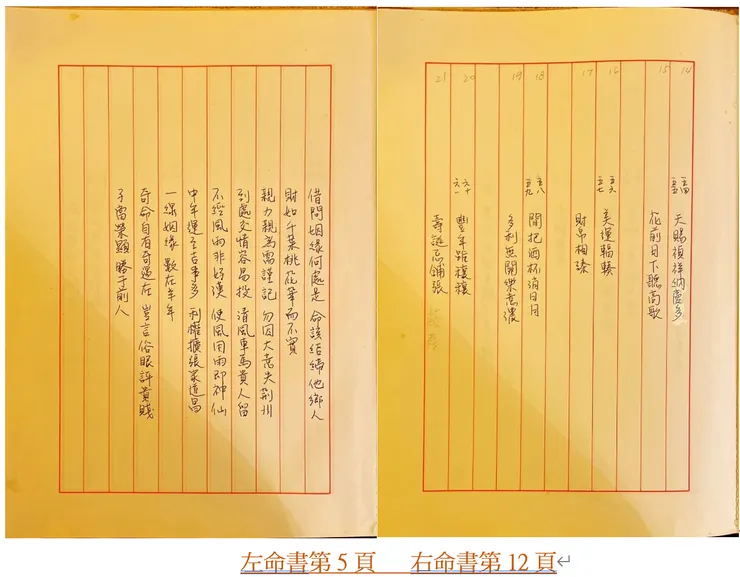 借問姻緣何處是 命該結締他鄉人
財如千葉桃 花華而不實
親力親為需謹記 勿因大意失荊州
到處交情容易投 清風車馬貴人留
不經風雨非好漢 使風雨即神仙
中年運至吉事多 利權擴張家道昌
一線姻緣 數在年年
奇命自有奇遇在 豈言俗眼評貴賤
子當榮顯 勝于前人
14 五四 五五 天賜禎祥納慶多
15 花前月下聽高歌
16 五六 五七 美運輻輳
17 財帛相臻
18 五八 五九 閒把酒杯消日月
19 多利無關樂意濃
20 六十 六一 豐年雖穰穰
21 壽誕忌鋪張
左命書第 5 頁 右命書第 12 頁